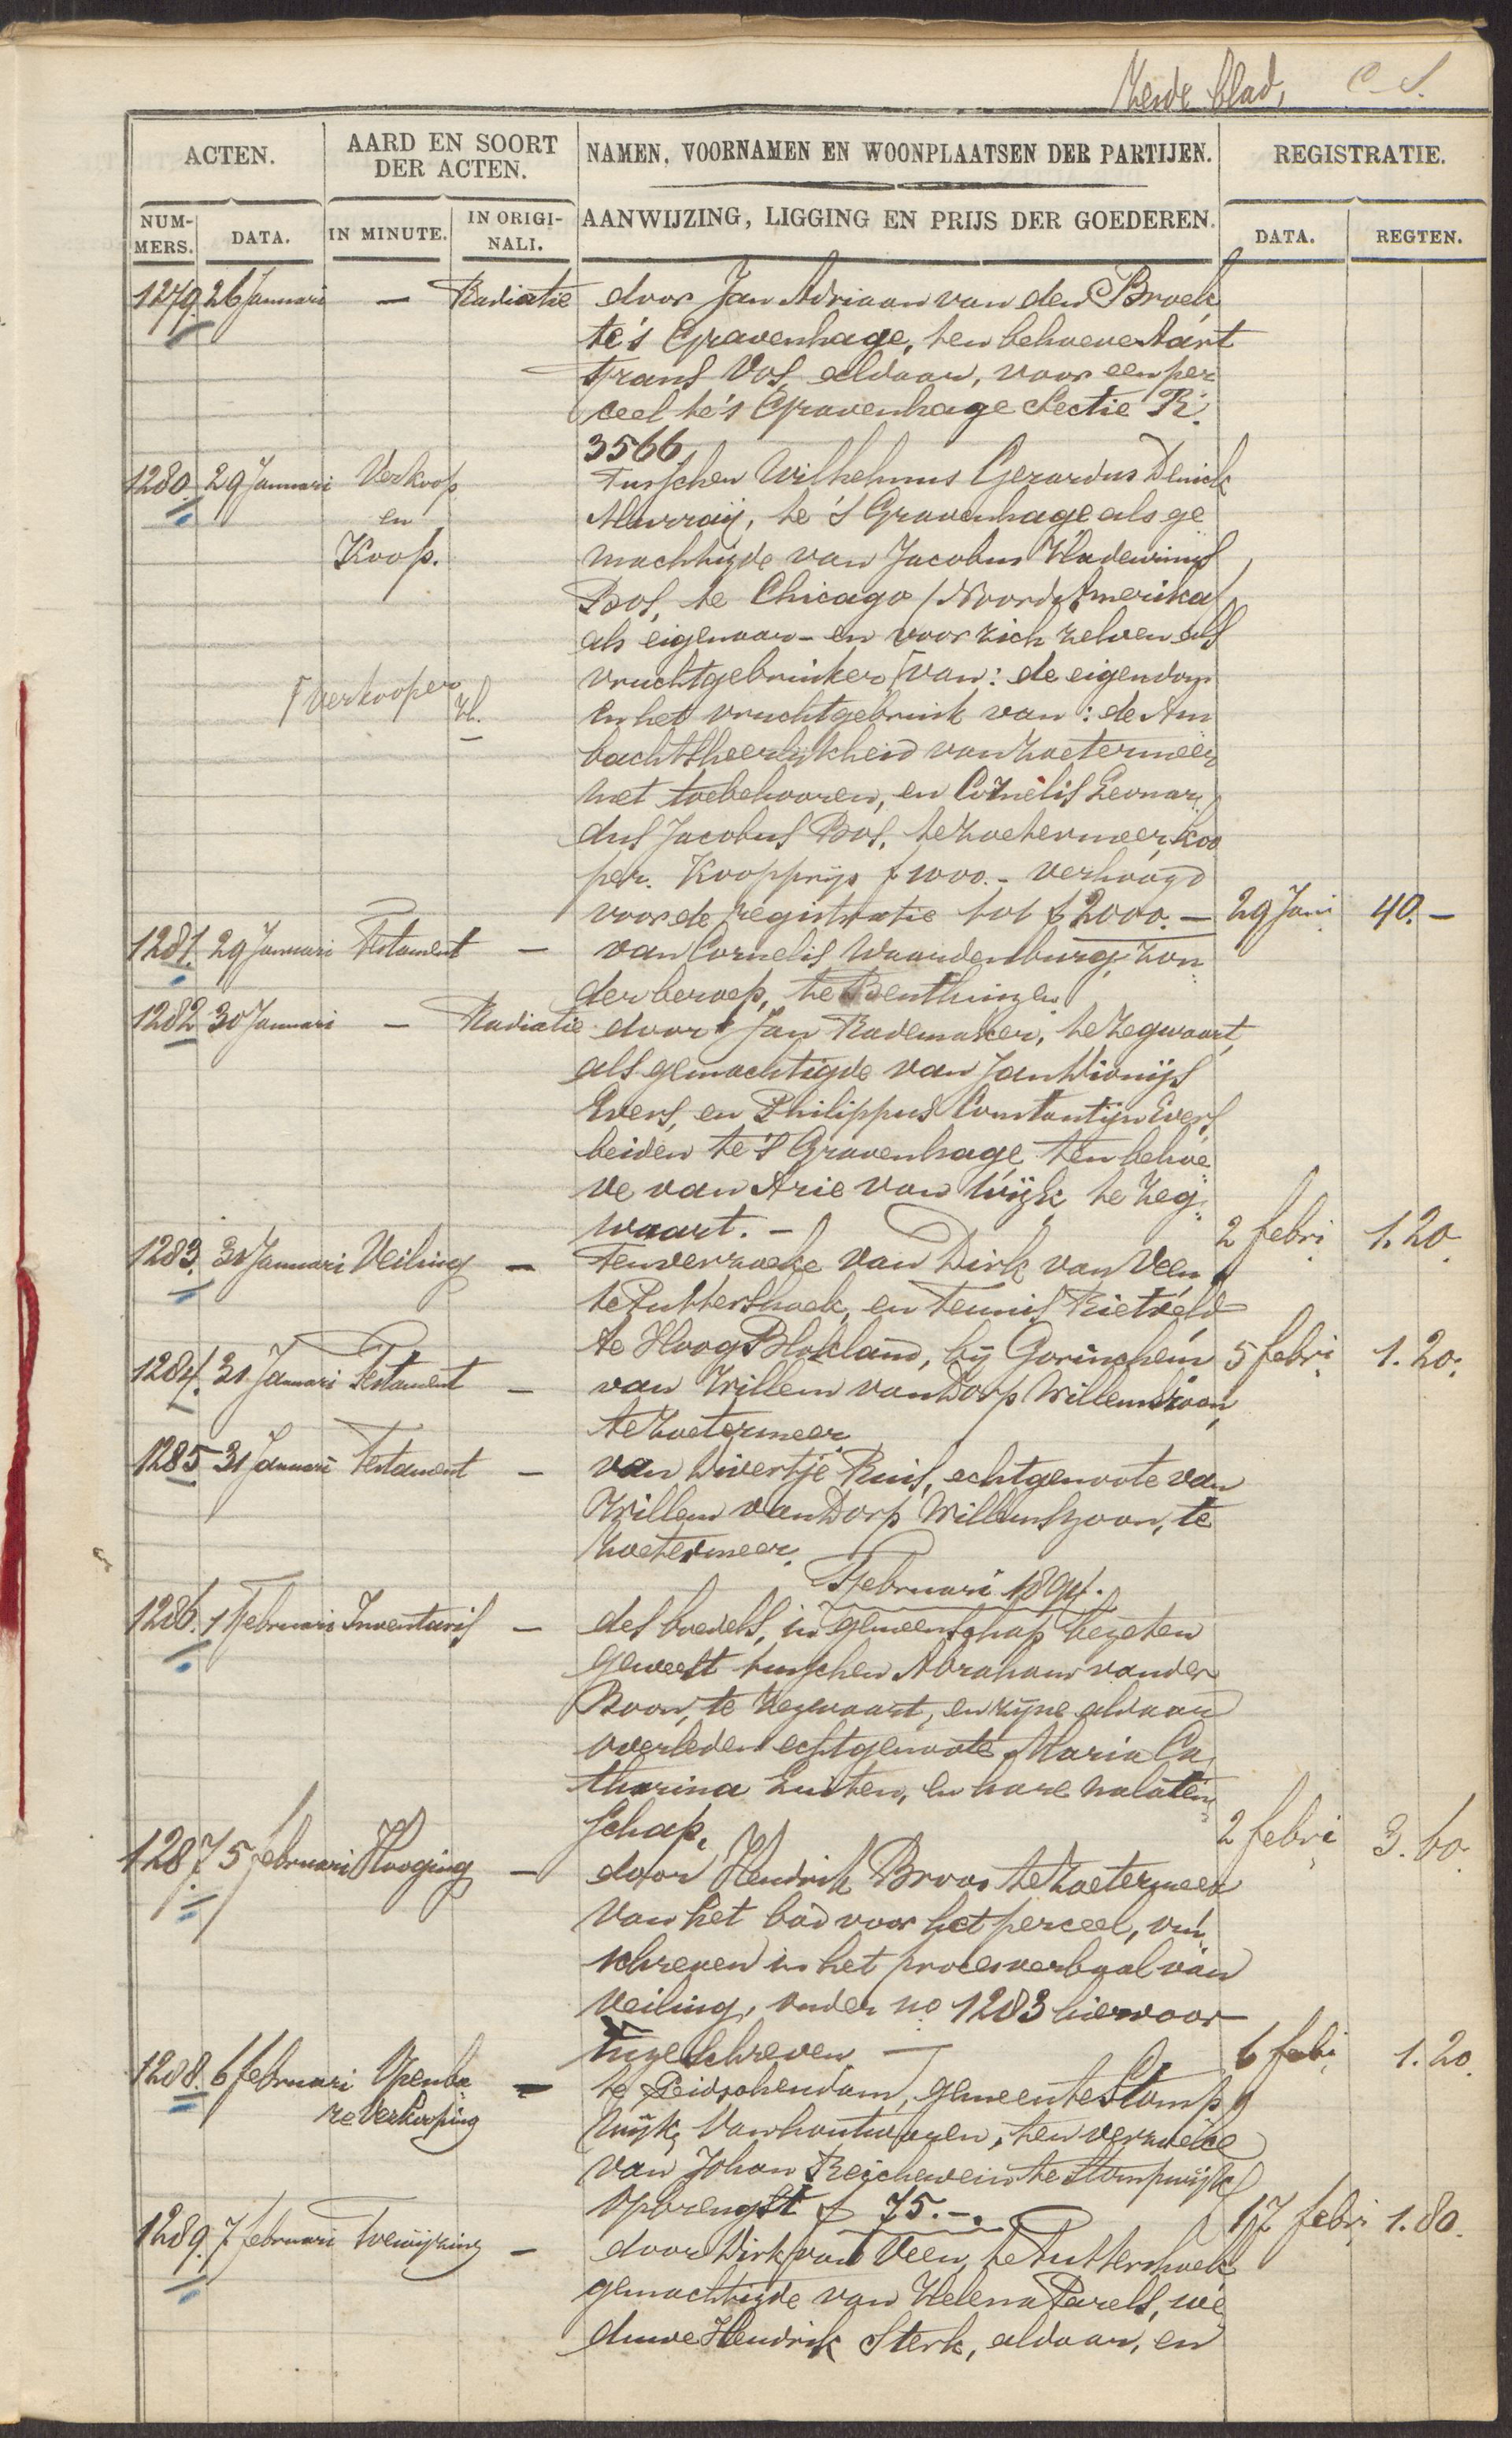 Zesde blad, C. S.
ACTEN. AARD EN SOORT DER ACTEN. NAMEN, VOORNAMEN EN WOONPLAATSEN DER PARTIJEN. REGISTRATIE.
NUMMERS. DATA. IN MINUTE. IN ORIGINALI. AANWIJZING, LIGGING EN PRIJS DER GOEDEREN. DATA. REGTEN.
1279. 26 Januari — Radiatie door Jan Adriaan van den Broek,
te 's Gravenhage, ten behoeve Aart
Frans Vos, aldaar, voor een per
ceel te 's Gravenhage Sectie R.
3566,
1280. 29 Januari Verkoop Tusschen Wilhelmus Gerardus Denick
en Murraij, te 's Gravenhage als ge
Koop. machtigde van Jacobus Hadewinus
Bos, te Chicago (Noord Amerika)
als eigenaar - en voor zich zelven als
vruchtgebruiker, ⌈ van: de eigendom
⌈ verkooper en het vruchtgebruik van: de Am
bachtsheerlijkheid van Zoetermeer
met toebehooren, en Cornelis Leonar
dus Jacobus Bos, te Zoetermeer, koo
per. Koopprijs f 1000.- verhoogd
voor de registratie tot f 2000.— 29 Jani 40.—
1281. 29 Januari Testament — van Cornelis Waardenburg, zon
der beroep, te Benthuizen.
1282 30 Januari — Radiatie door Jan Rademaker, te Zegwaart,
als gemachtigde van Jan Dionijs
Evers, en Philippus Constantijn Evers,
beiden te 's Gravenhage ten behoe
ve van Arie van Wijk te Zeg
waart. — 2 febri 1.20.
1283. 31 Januari Veiling — Ten verzoeke van Dirk van Veen,
te Puttershoek, en Teunis Rietveld
te Hoog Blokland, bij Gorinchem 5 febri 1.20.
1284. 31 Januari Testament — van Willem van Dorp Willemszoon,
te Zoetermeer
1285 31 Januari Testament — van Divertje Ruis, echtgenoote van
Willem van Dorp Willemszoon, te
Zoetermeer.
Februari 1894.
1286. 1 Februari Inventaris — des boedels, in gemeenschap bezeten
geweest tusschen Abraham van der
Boon, te Zegwaart, en zijne aldaar
overleden echtgenoote Maria Ca
tharina Luiten, en hare nalaten
schap, 2 febri 3.60.
1287. 5 februari Hooging — door Hendrik Broos te Zoetermeer
van het bod voor het perceel, om
schreven in het procesverbaal van
veiling, onder no 1283 hiervoor
ingeschreven — 6 febi. 1.20.
1288. 6 februari Openba — te Leidschendam, gemeente Stomp
re Verkooping wijk, van houtwaren, ten verzoeke
van Johan Reichewein te Stompwijk
Opbrengst f 75.—. 17 febri 1.80.
1289. 7 februari Toewijzing — door Dirk van Veen, te Puttershoek
gemachtigde van Helena Parels, we
duwe Hendrik Sterk, aldaar, en